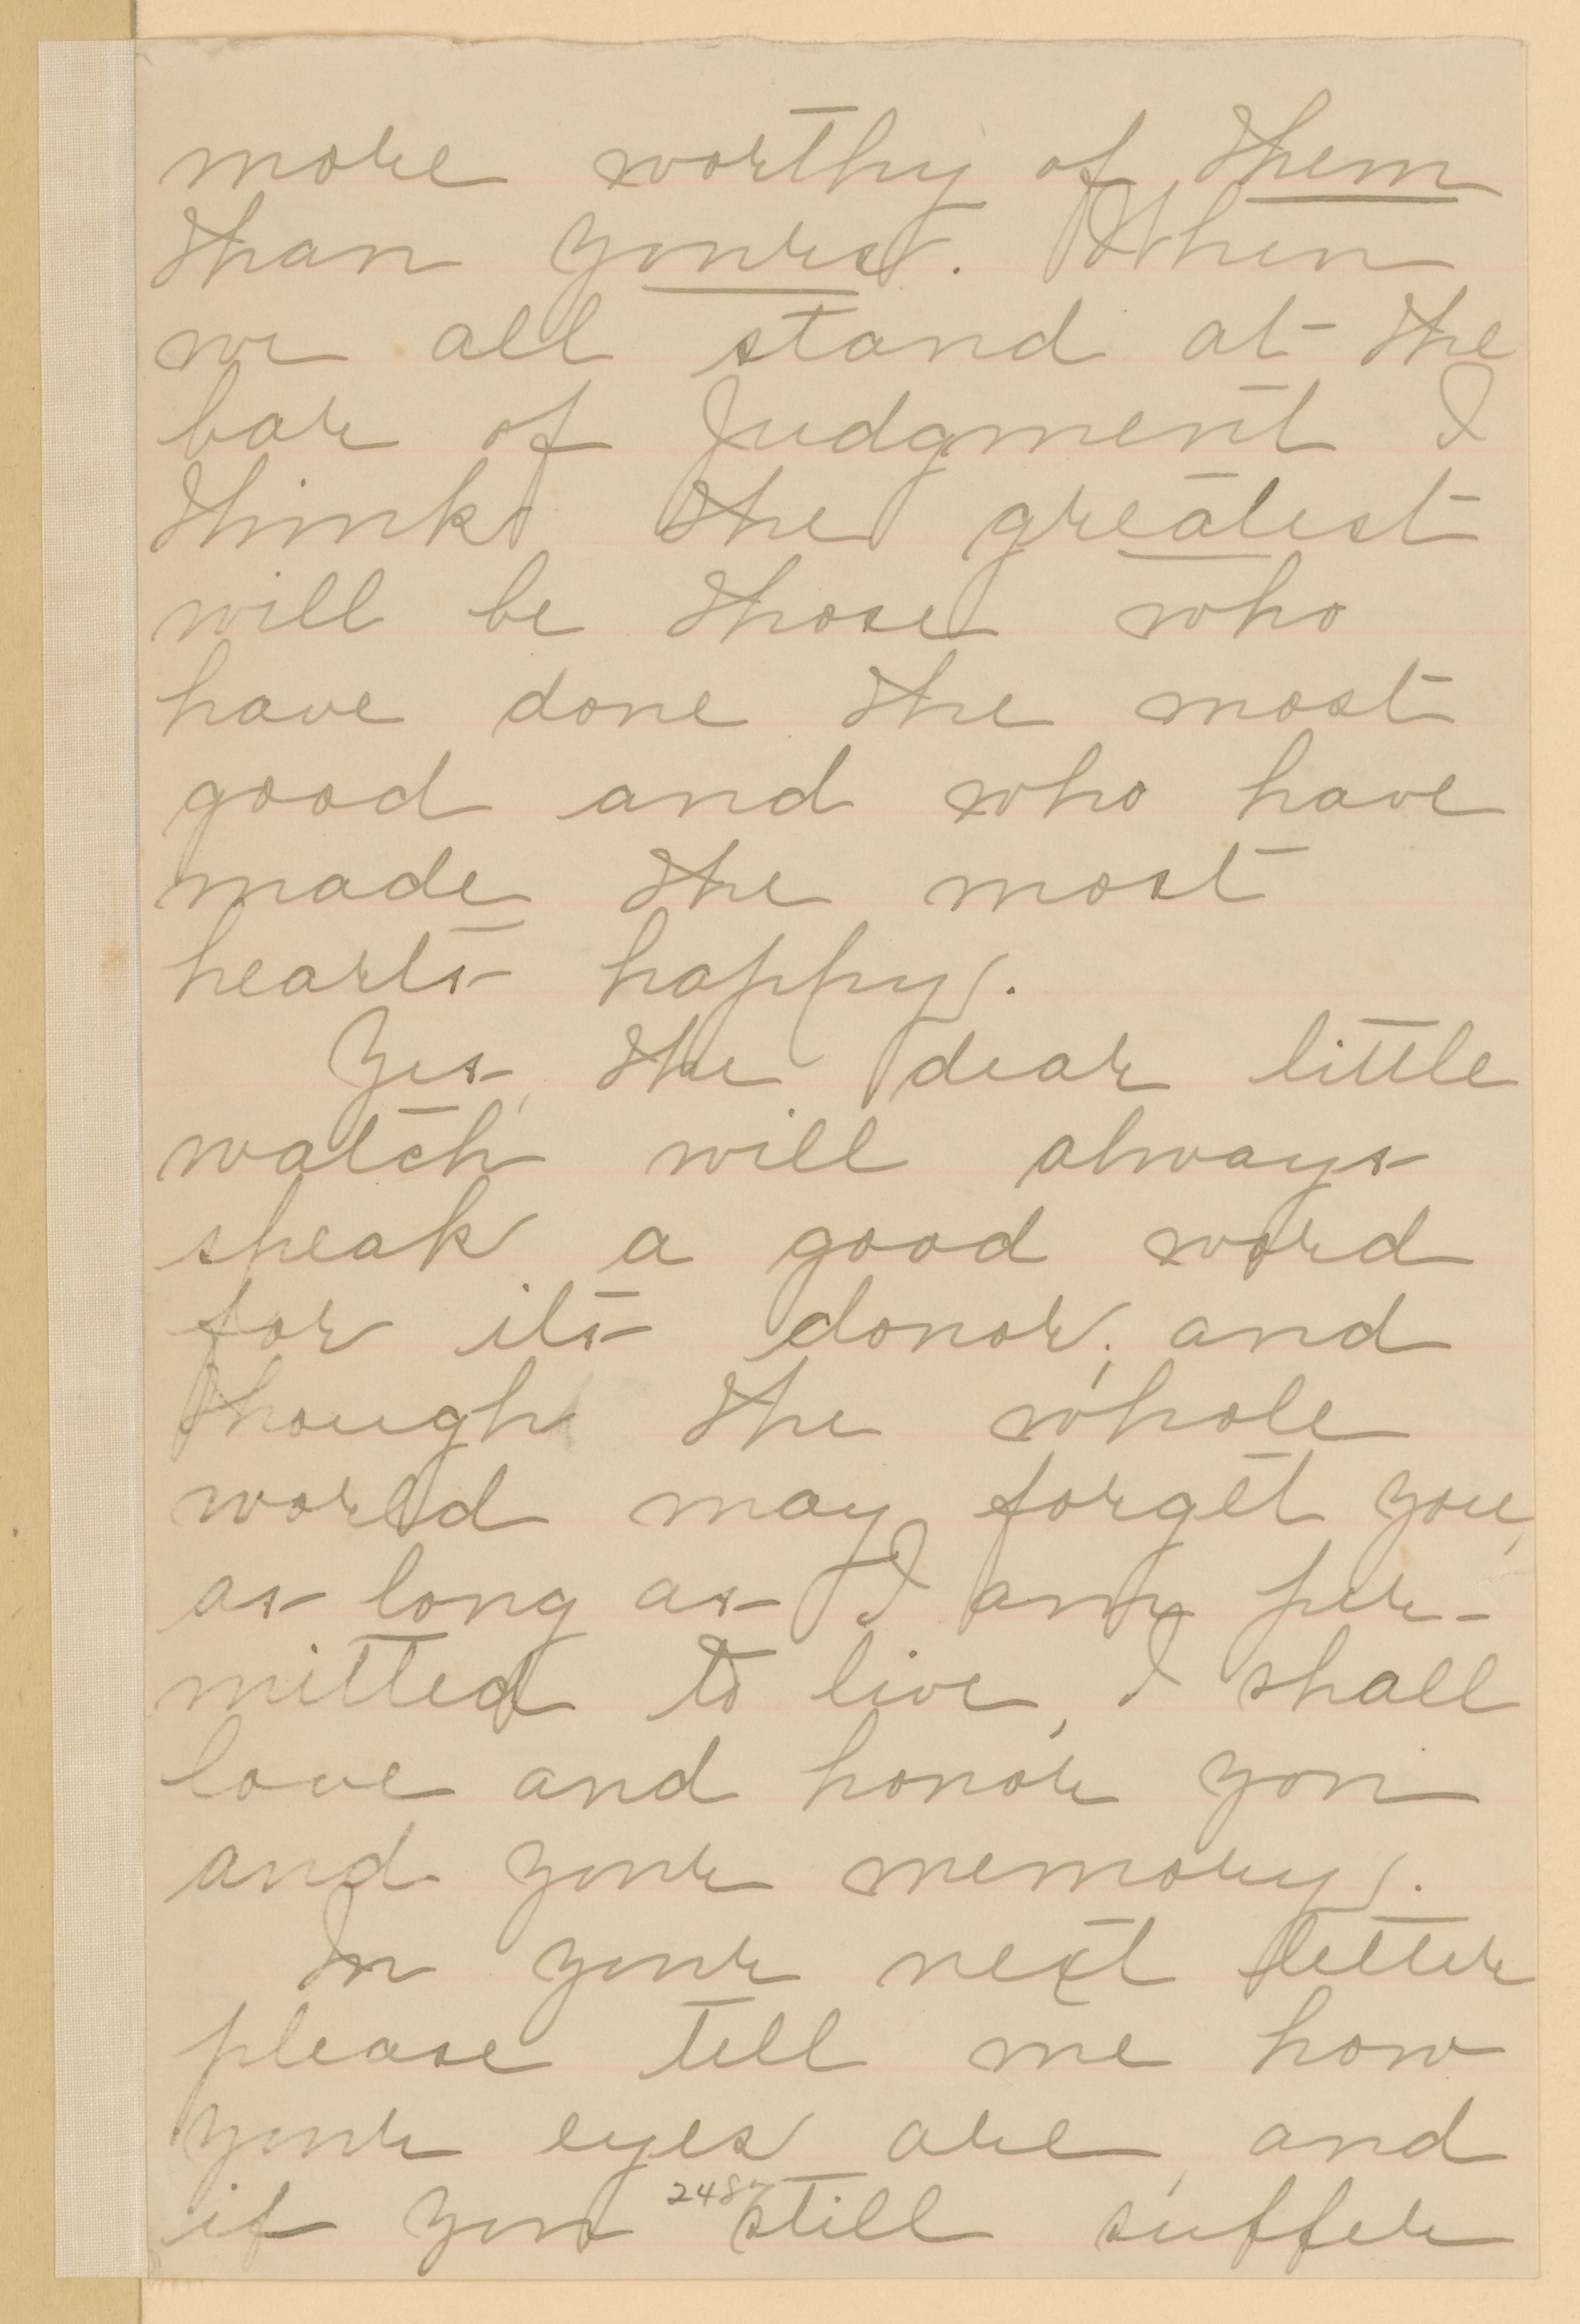 more worthy of them
than yours. When
we all stand at the
bar of Judgment I
think the greatest
will be those who
have done the most
good and who have
made the most
hearts happy.
Yes, the dear little
watch will always
speak a good word
for its donor; and
though the whole
world may forget you,
as long as I am per-
mitted to live, I shall
love and honor you
and your memory.
In your next letter
please tell me how
your eyes are, and
if you still suffer